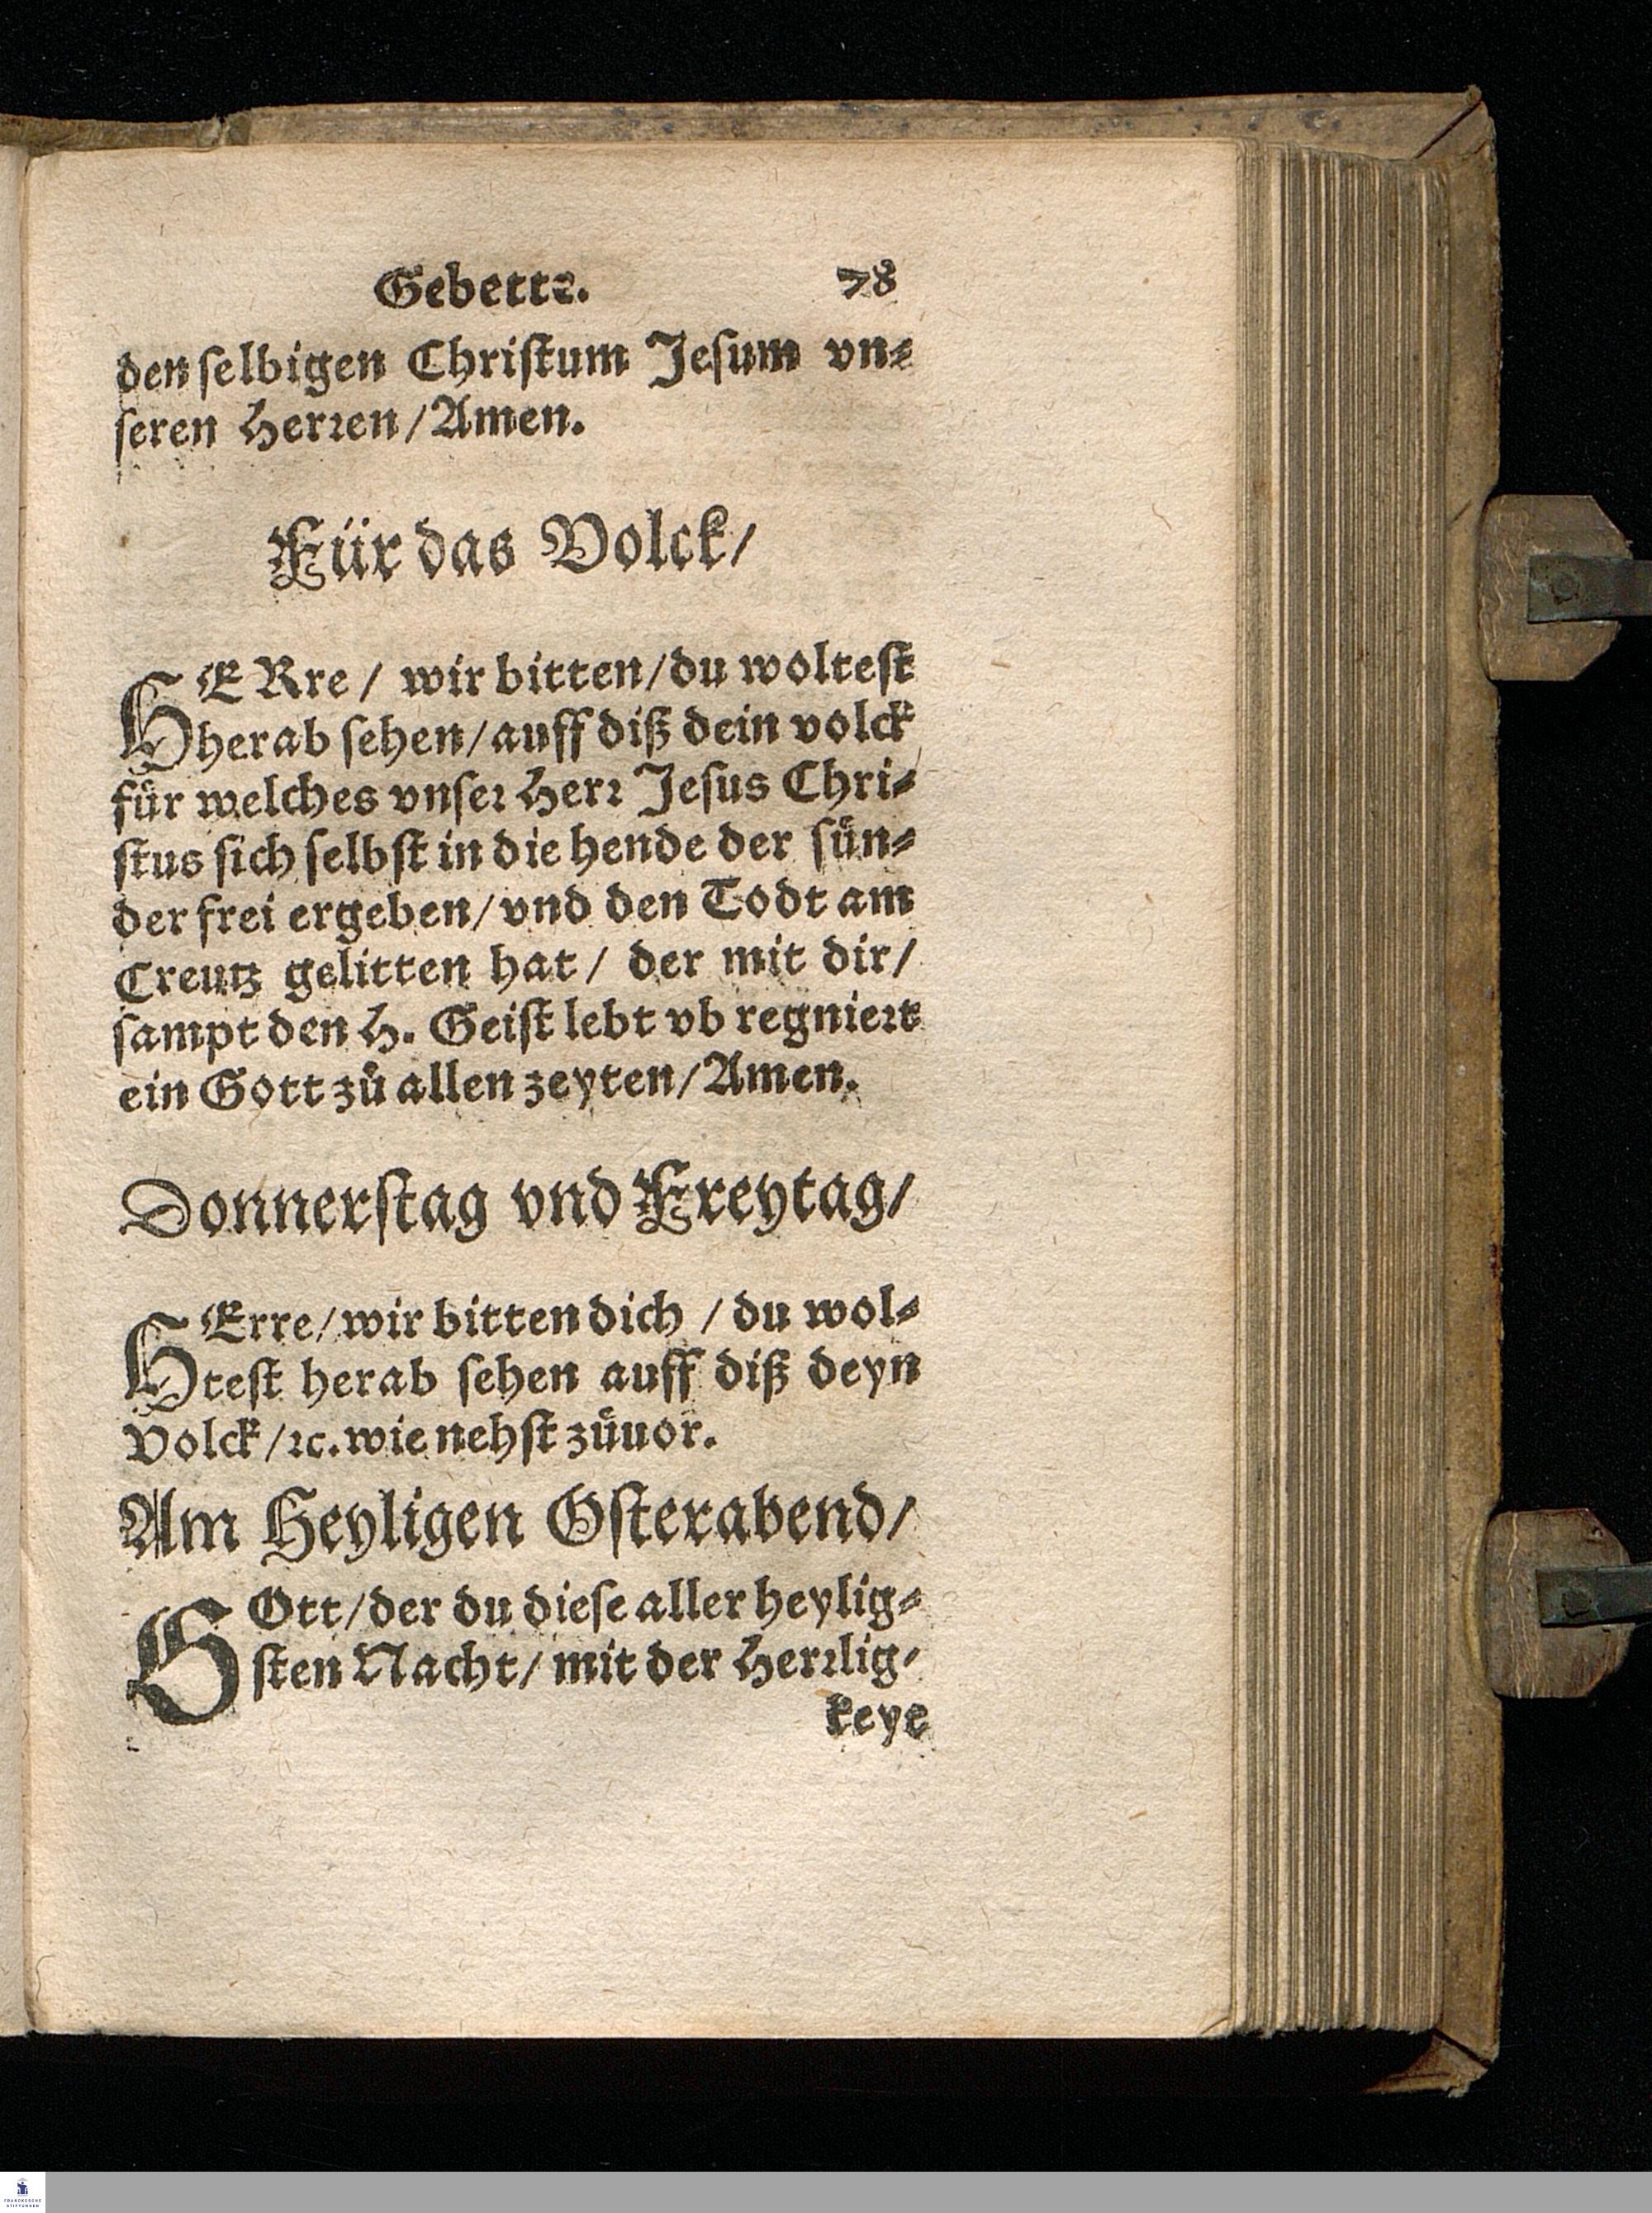 Gebette. 78
den selbigen Christum Jesum vn⸗
seren Herren / Amen.
Für das Volck /
HERre / wir bitten / du woltest
herab sehen / auff diß dein volck
fuͤr welches vnser Herr Jesus Chri⸗
stus sich selbst in die hende der suͤn⸗
der frei ergeben / vnd den Todt am
Creutz gelitten hat / der mit dir /
sampt den H. Geist lebt vb regniert
ein Gott zuͦ allen zeyten / Amen.
Donnerstag vnd Freytag /
HErre / wir bitten dich / du wol⸗
test herab sehen auff diß deyn
Volck / ꝛc. wie nehst zuͦuor.
Am Heyligen Osterabend /
GOtt / der du diese aller heylig⸗
sten Nacht / mit der Herrlig⸗
keyt
FRANCKESCHE
STIFTUNGEN